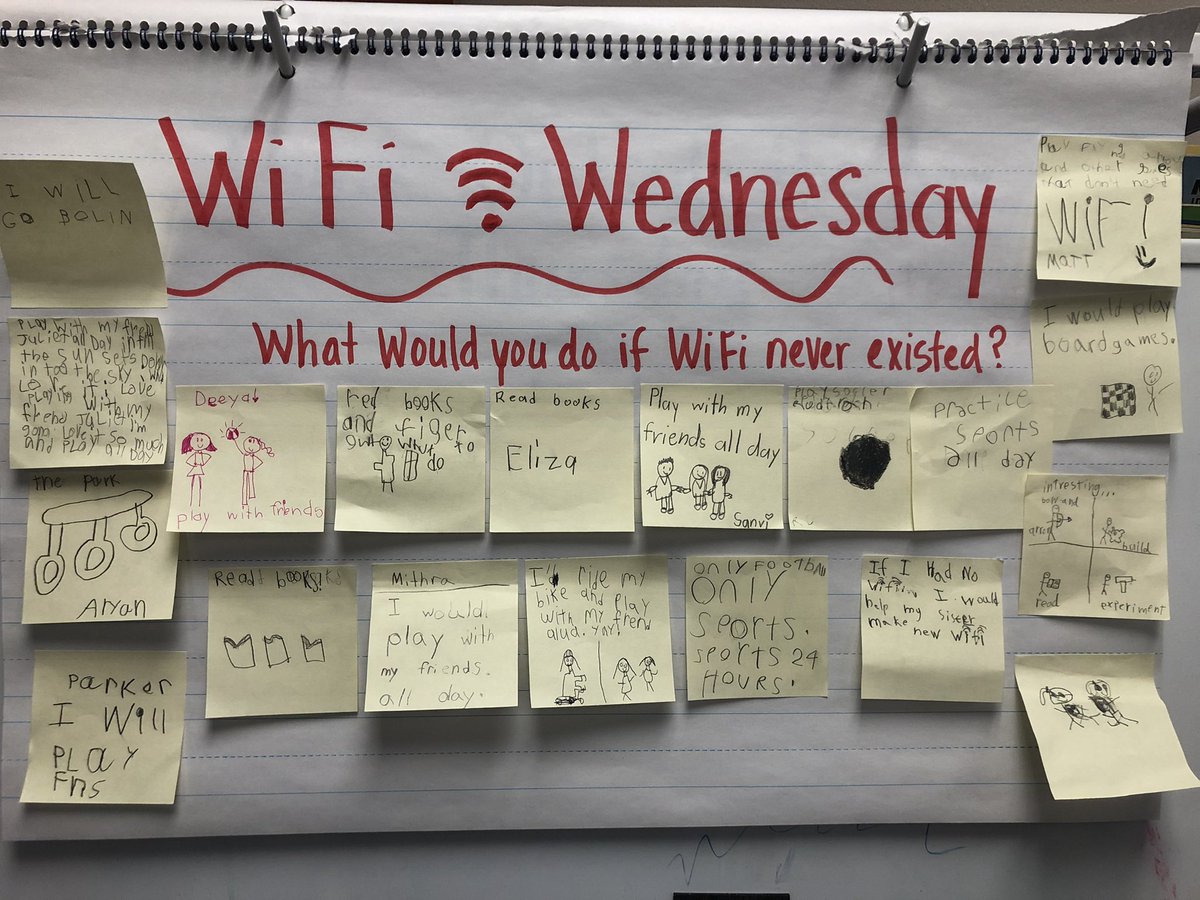 WiFi Wednesday
What Would you do if WiFi never existed?
I WILL
GO BOLIN
PLAY With my frend
Juliet all Day intill
the sun sets
in too the sky
Love it I Love
Playing With my
frend Juliet im
gona Love it so much
and Play all Day
the park
Aryan
Parker
I Will
PLAY
Fns
Deeya
play with friends
red books
and figer
out what to
do
Read books
Eliza
Play with my
friends all day
Sanvi
Practice
sports
all day
Read books!
Mithra
I would
play with
my friends.
all day.
I'd ride my
bike and play
with my frend
alud. yay!
ONLY FOOTBAll
ONLY
SPORTS.
sports 24
HOURS.
If I Had No
I would
help my
make new wifi
Play
and other
that don't need
WiFi
MATT
I would play
boardgames.
intresting...
bow and
arrow
build
read
experiment